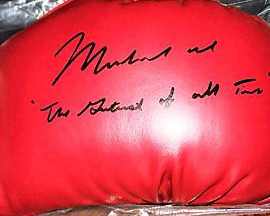 Muhammad Ali
"The Greatest of all Time"